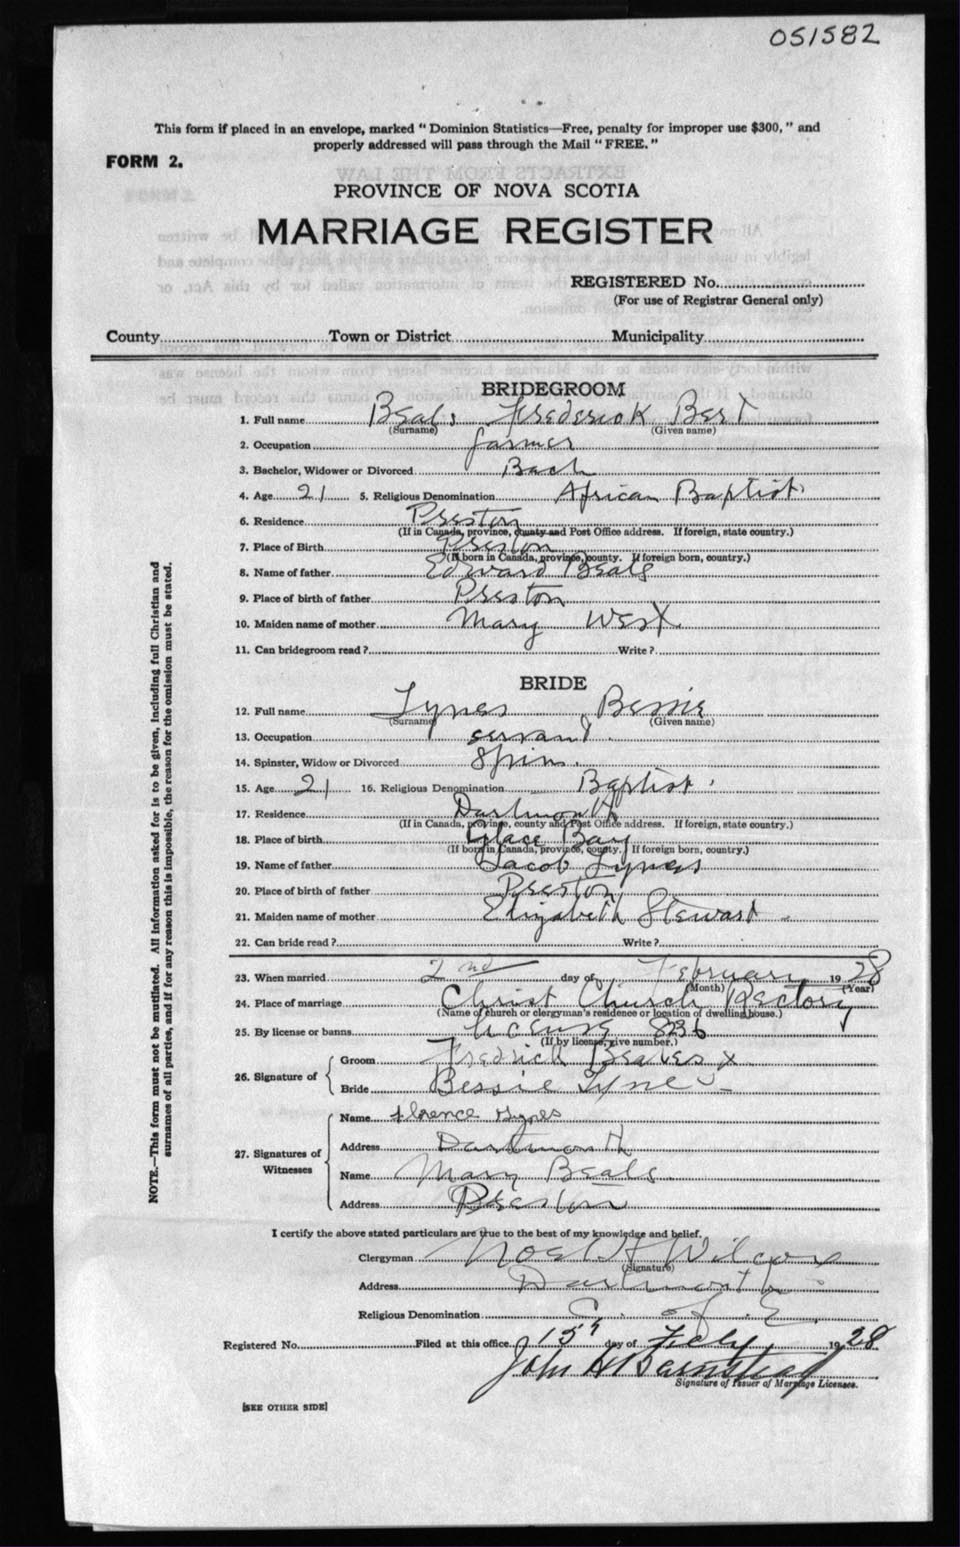 051582
This form if placed in an envelope, marked "Dominion Statistics—Free, penalty for improper use $300," and
properly addressed will pass through the Mail "FREE."
FORM 2.
PROVINCE OF NOVA SCOTIA
MARRIAGE REGISTER
REGISTERED No.
(For use of Registrar General only)
County Town or District Municipality
BRIDEGROOM
1. Full name Beals Frederick Bert
(Surname) (Given name)
2. Occupation farmer
3. Bachelor, Widower or Divorced Bach
4. Age 21 5. Religious Denomination African Baptist
6. Residence Preston
(If in Canada, province, county and Post Office address. If foreign, state country.)
7. Place of Birth Preston
(If born in Canada, province, county. If foreign born, country.)
8. Name of father Edward Beals
9. Place of birth of father Preston
10. Maiden name of mother Mary West
11. Can bridegroom read? Write?
BRIDE
12. Full name Tynes Bessie
(Surname) (Given name)
13. Occupation servant
14. Spinster, Widow or Divorced Spin.
15. Age 21 16. Religious Denomination Baptist
17. Residence Dartmouth
(If in Canada, province, county and Post Office address. If foreign, state country.)
18. Place of birth Glace Bay
(If born in Canada, province, county. If foreign born, country.)
19. Name of father Jacob Tynes
20. Place of birth of father Preston
21. Maiden name of mother Elizabeth Stewart
22. Can bride read? Write?
23. When married 2nd day of February 1928
(Month) (Year)
24. Place of marriage Christ Church Rectory
(Name of church or clergyman's residence or location of dwelling house.)
25. By license or banns License 836
(If by license, give number.)
26. Signature of Groom Fredrick Beales x
Bride Bessie Tynes
27. Signatures of Witnesses Name Florence Tynes
Address Dartmouth
Name Mary Beals
Address Preston
I certify the above stated particulars are true to the best of my knowledge and belief.
Clergyman Noel H Wilcox
(Signature)
Address Dartmouth
Religious Denomination C. of E.
Registered No. Filed at this office 15 day of Feby 1928
John H Barnstead
Signature of Issuer of Marriage Licenses.
[SEE OTHER SIDE]
NOTE.—This form must not be mutilated. All information asked for is to be given, including full Christian and
surnames of all parties, and if for any reason this is impossible, the reason for the omission must be stated.